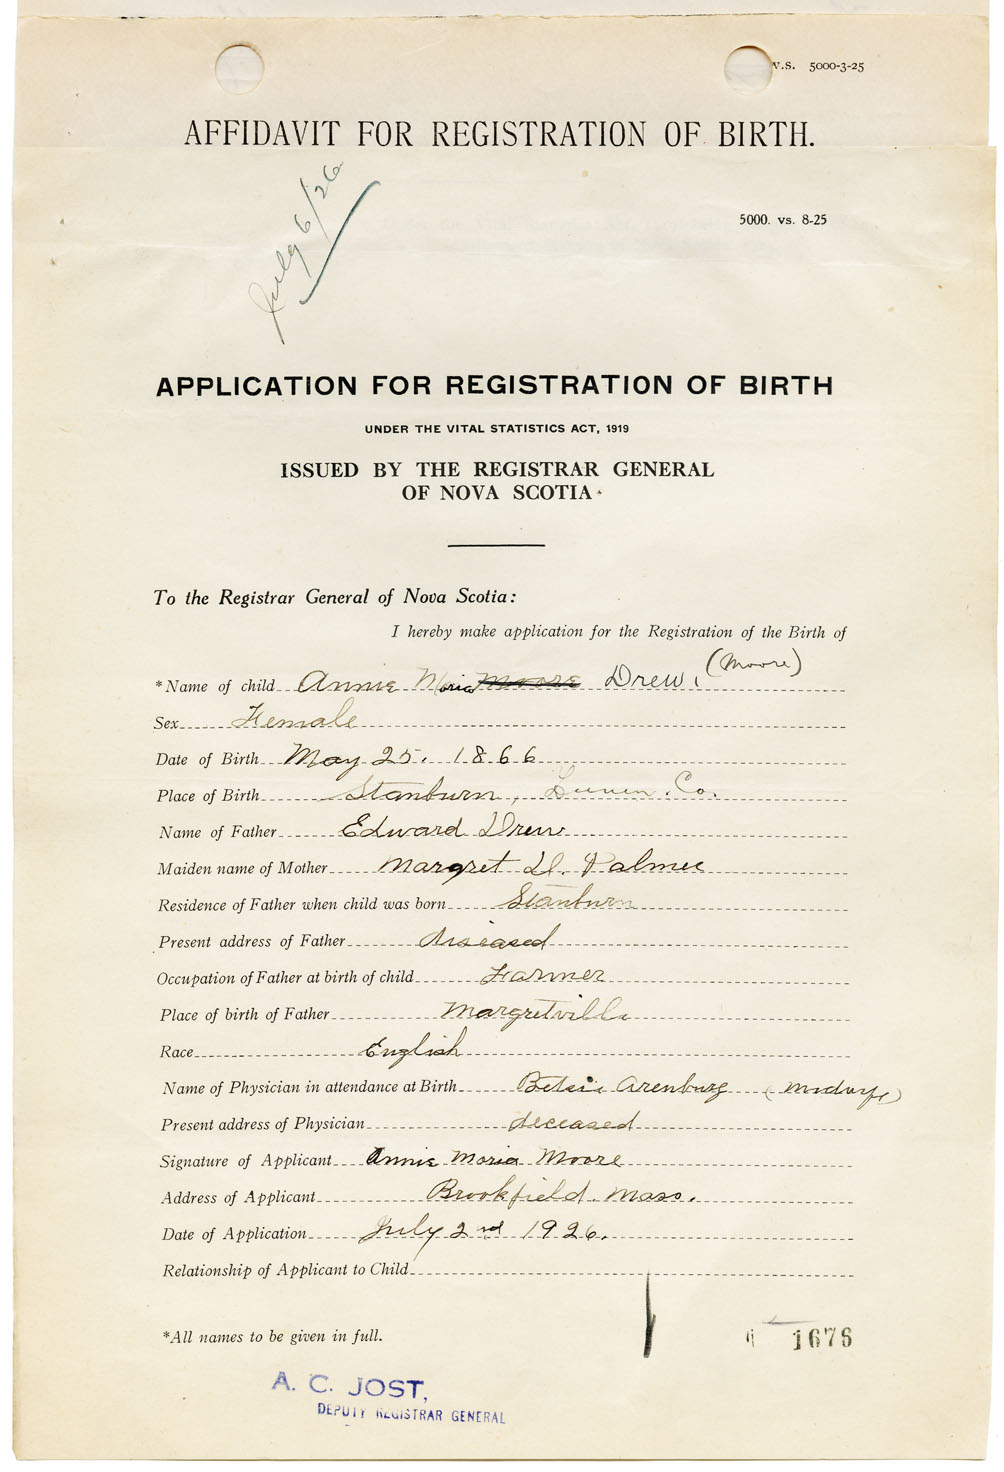 V.S. 5000-3-25
AFFIDAVIT FOR REGISTRATION OF BIRTH.
July 6/26
5000. vs. 8-25
APPLICATION FOR REGISTRATION OF BIRTH
UNDER THE VITAL STATISTICS ACT, 1919
ISSUED BY THE REGISTRAR GENERAL
OF NOVA SCOTIA
To the Registrar General of Nova Scotia:
I hereby make application for the Registration of the Birth of
(Moore)
*Name of child Annie Maria Moore Drew.
Sex Female
Date of Birth May 25. 1866
Place of Birth Stanburn, Lunen. Co.
Name of Father Edward Drew
Maiden name of Mother Margret D. Palmer
Residence of Father when child was born Stanburn
Present address of Father diseased
Occupation of Father at birth of child Farmer
Place of birth of Father Margretville
Race English
Name of Physician in attendance at Birth Betsie Arenburg (Midwife)
Present address of Physician deceased
Signature of Applicant Annie Maria Moore
Address of Applicant Brookfield Mass.
Date of Application July 2nd 1926.
Relationship of Applicant to Child
*All names to be given in full.
1676
A. C. JOST,
DEPUTY REGISTRAR GENERAL